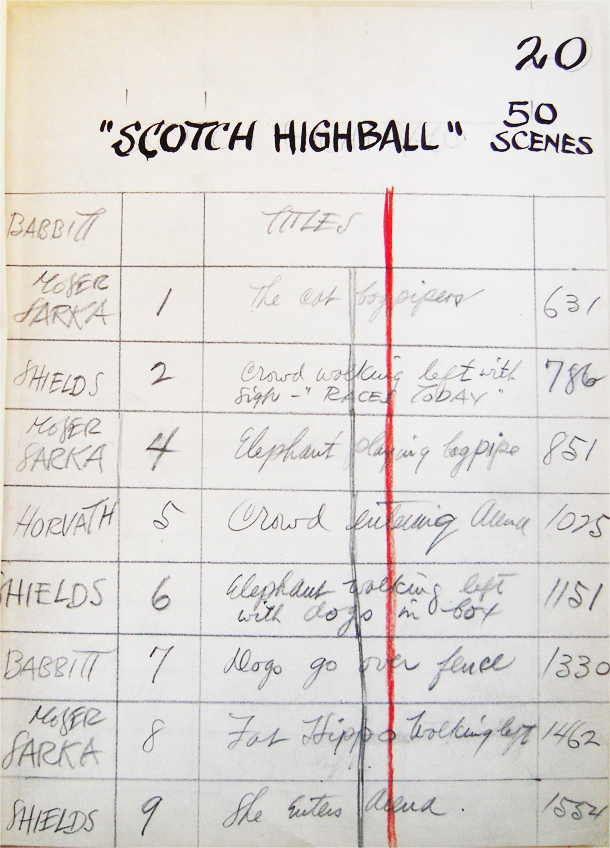 20
"SCOTCH HIGHBALL" 50 SCENES
BABBITT TITLES
MOSER
SARKA 1 The cat bagpipers 631
SHIELDS 2 Crowd walking left with 786
sign - "RACES TODAY"
MOSER
SARKA 4 Elephant playing bagpipe 851
HORVATH 5 Crowd entering Arena 1025
SHIELDS 6 Elephant walking left 1151
with dogs in box
BABBITT 7 Dogs go over fence 1330
MOSER
SARKA 8 Fat Hippo Walking left 1462
SHIELDS 9 She Enters Arena. 1554